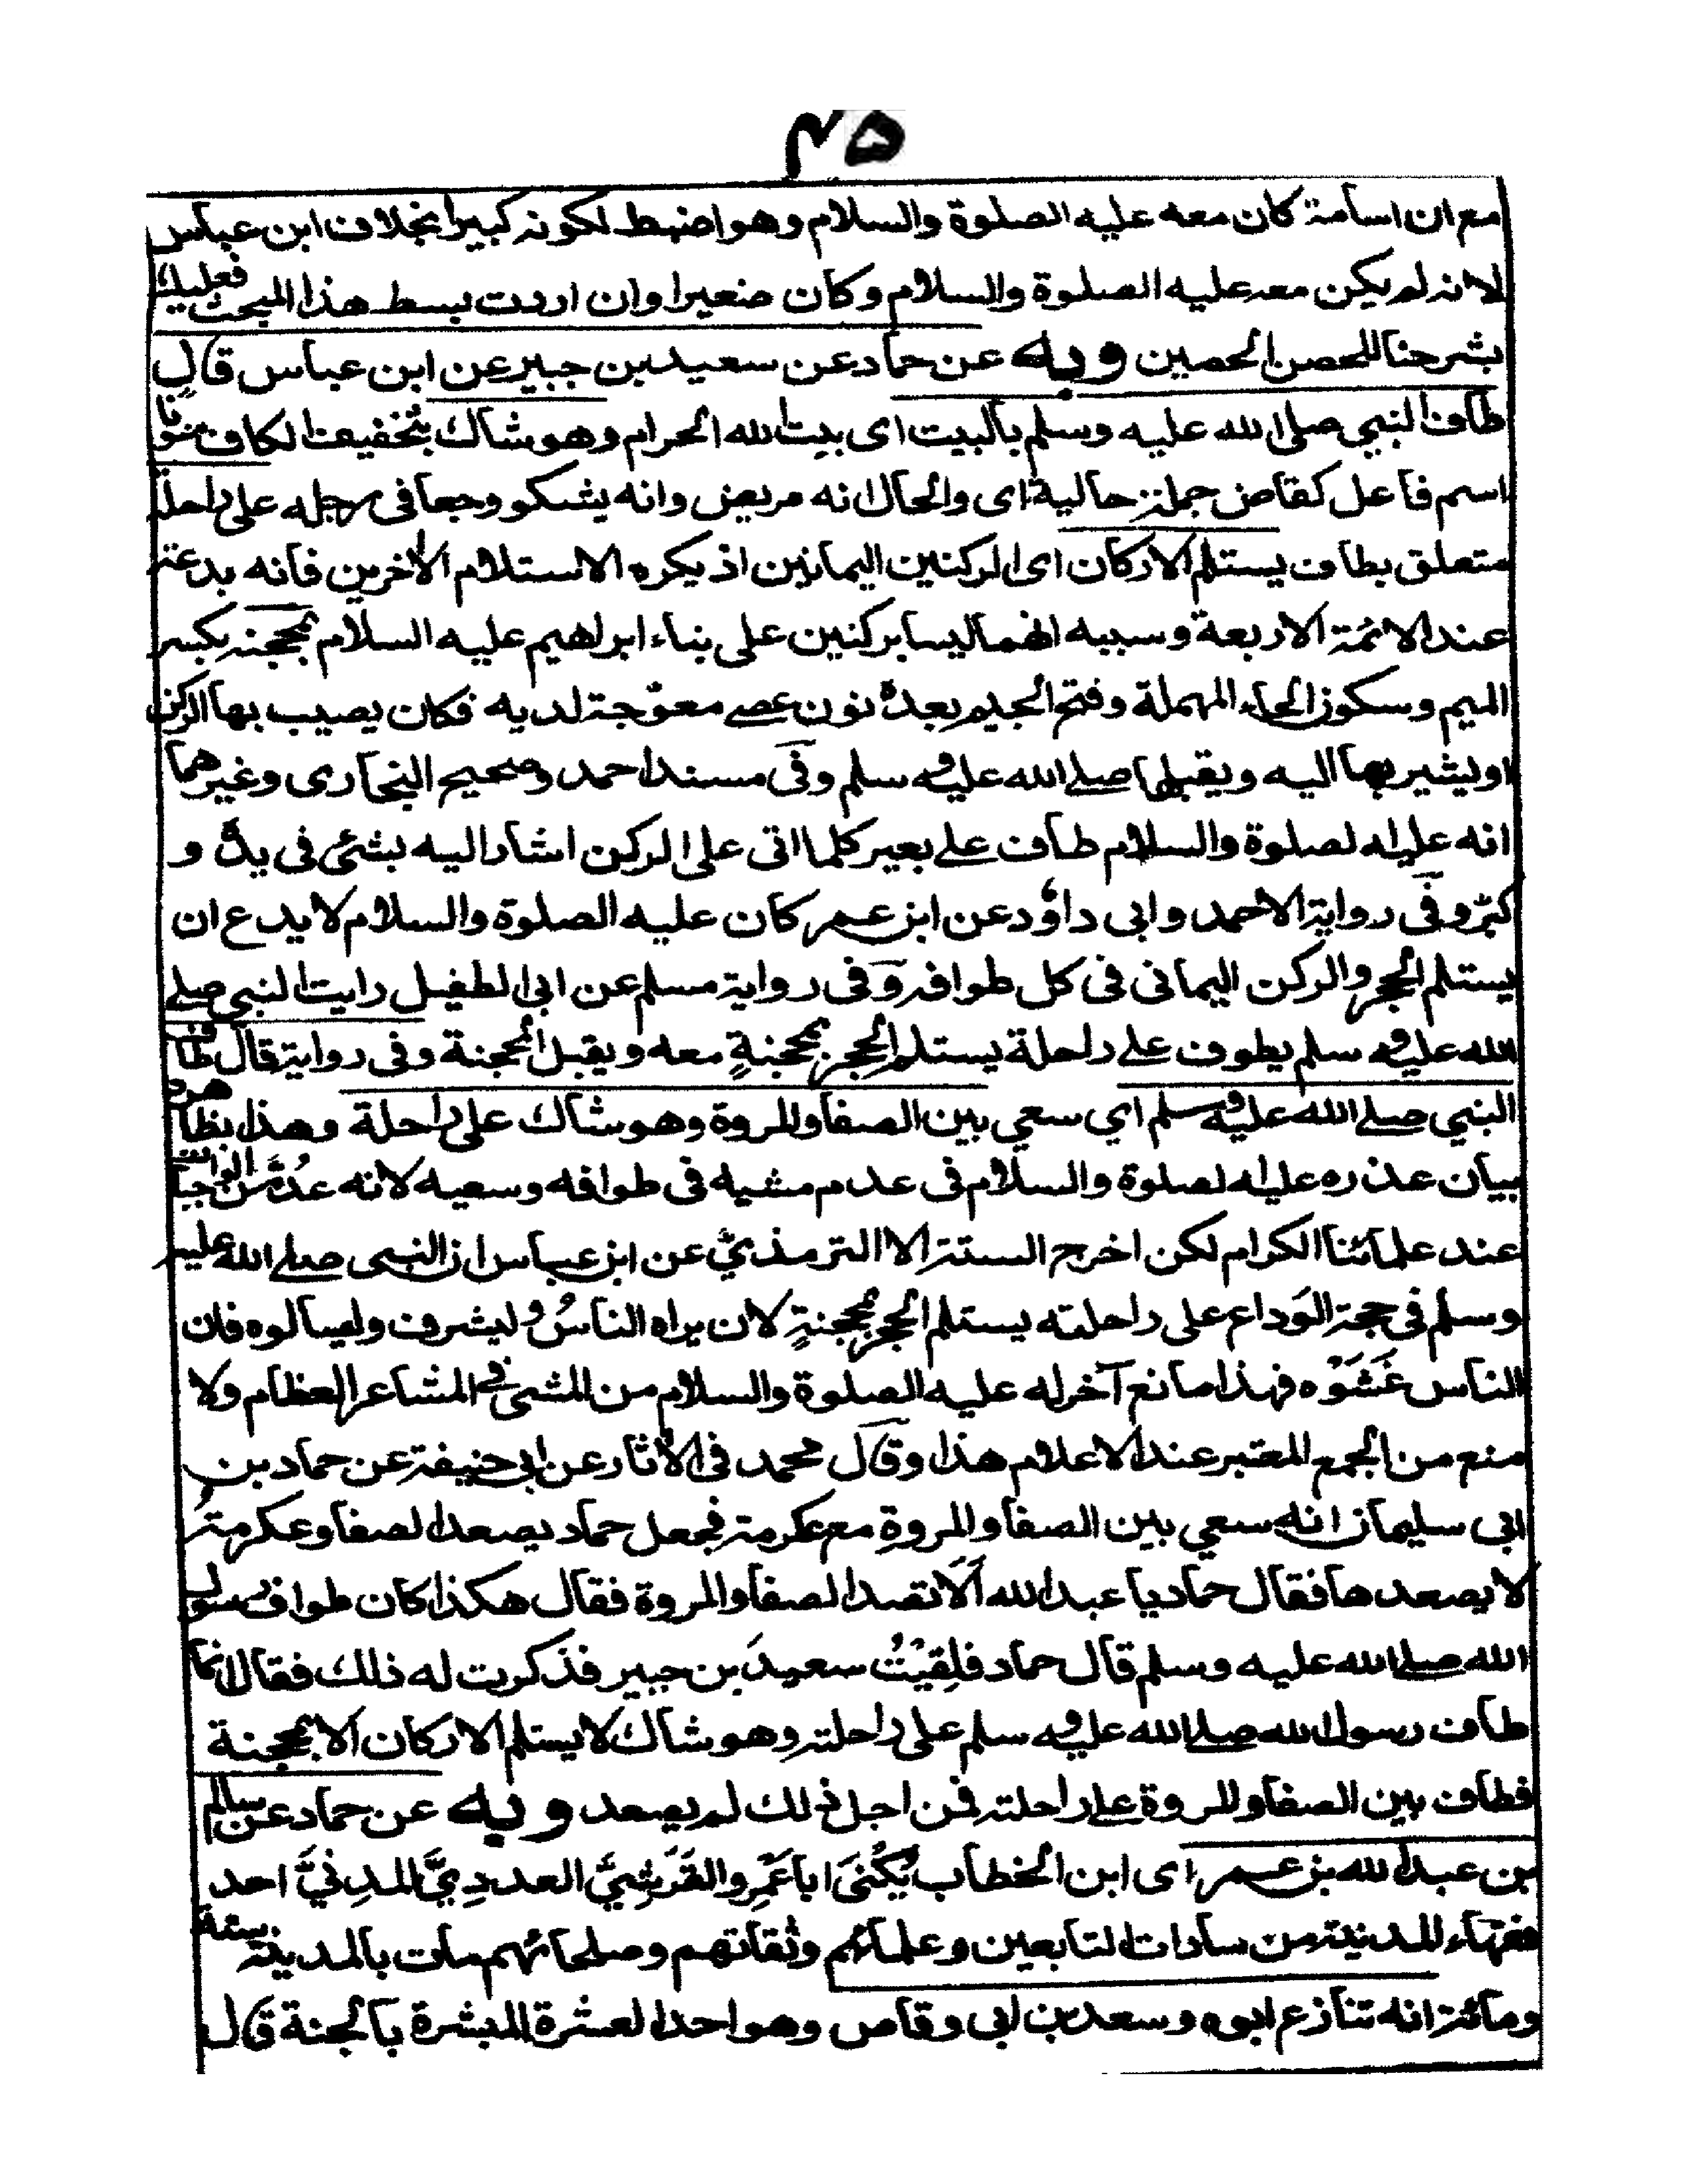 ٤٥
مع ان اسامة كان معه عليه الصلوة والسلام وهو اضبط لكونه كبيرا بخلاف ابن عباس
لانه لم يكن معه عليه الصلوة والسلام وكان صغيرا وان اردت بسط هذا المبحث فعليك
بشرحنا للحصن الحصين وبه عن حماد عن سعيد بن جبير عن ابن عباس قال
طاف النبي صلى الله عليه وسلم بالبيت اى بيت الله الحرام وهو شاك بتخفيف الكاف منونا
اسم فاعل كقاض جملة حالية اى والحال انه مريض وانه يشكو وجعا فى رجله على راحلة
متعلق بطاف يستلم الاركان اى الركنين اليمانين اذ يكره الاستلام الأخرين فانه بدعة
عند الائمة الاربعة وسببه انهما ليسا بركنين على بناء ابراهيم عليه السلام بمحجنه بكسر
الميم وسكون الحاء المهملة وفتح الجيم بعده نون عصے معوّجة لديه فكان يصيب بها الركن
او يشير بها اليه ويقبلها صلے الله عليه وسلم وفى مسند احمد وصحيح البخارى وغيرهما
انه عليه الصلوة والسلام طاف علے بعير كلما اتى على الركن اشار اليه بشئ فى يده و
كبّر وفى رواية الاحمد وابى داؤد عن ابن عمر كان عليه الصلوة والسلام لا يدع ان
يستلم الحجر والركن اليمانى فى كل طوافه وفى رواية مسلم عن ابى الطفيل رايت النبي صلے
الله عليه وسلم يطوف علے راحلة يستلم الحجر بمحجنةٍ معه ويقبل المحجنة وفى رواية قال طاف
النبي صلے الله عليه وسلم اي سعي بين الصفا والمروة وهو شاك على راحلة وهذا بظاهره
بيان عذره عليه الصلوة والسلام فى عدم مشيه فى طوافه وسعيه لانه عُدَّ من الواجبات
عند علمائنا الكرام لكن اخرج الستة الا الترمذيَّ عن ابن عباس ان النبى صلے الله عليه
وسلم فى حجة الوَداع على راحلته يستلم الحجر بمحجنةٍ لان يراه الناسُ وليشرف وليسالوه فان
الناس غَشَوْه فهذا مانع آخر له عليه الصلوة والسلام من المشى فى المشاعر العظام ولا
منع من الجمع المعتبر عند الاعلام هذا وقال محمد فى الأثار عن ابى حنيفة عن حماد بن
ابى سليمان انه سعي بين الصفا والمروةِ مع عكرمة فجعل حماد يصعد الصفا وعكرمةُ
لا يصعدها فقال حماد يا عبد الله اَلَا تصعد الصفا والمروة فقال هكذا كان طواف رسول
الله صلے الله عليه وسلم قال حماد فلِقيْتُ سعيدَ بن جبير فذكرت له ذلك فقال انما
طاف رسول الله صلے الله عليه وسلم على راحلته وهو شاك لا يستلم الاركان الا بمحجنة
فطاف بين الصفا والمروة علے راحلته فمن اجل ذلك لم يصعد وبه عن حماد عن سالم
بن عبد الله بن عمر اى ابن الخطاب يُكْنٰى اباعَمْرِو القَرَشِيَّ العددِيَّ المدِنيَّ احد
فقهاء المدينة من سادات التابعين وعلمائهم وثقاتهم وصلحائهم مات بالمدينة سنة
ومائة انه تنازع ابوه وسعد بن ابى وقاص وهو احد العشرة المبشرة بالجنة قال